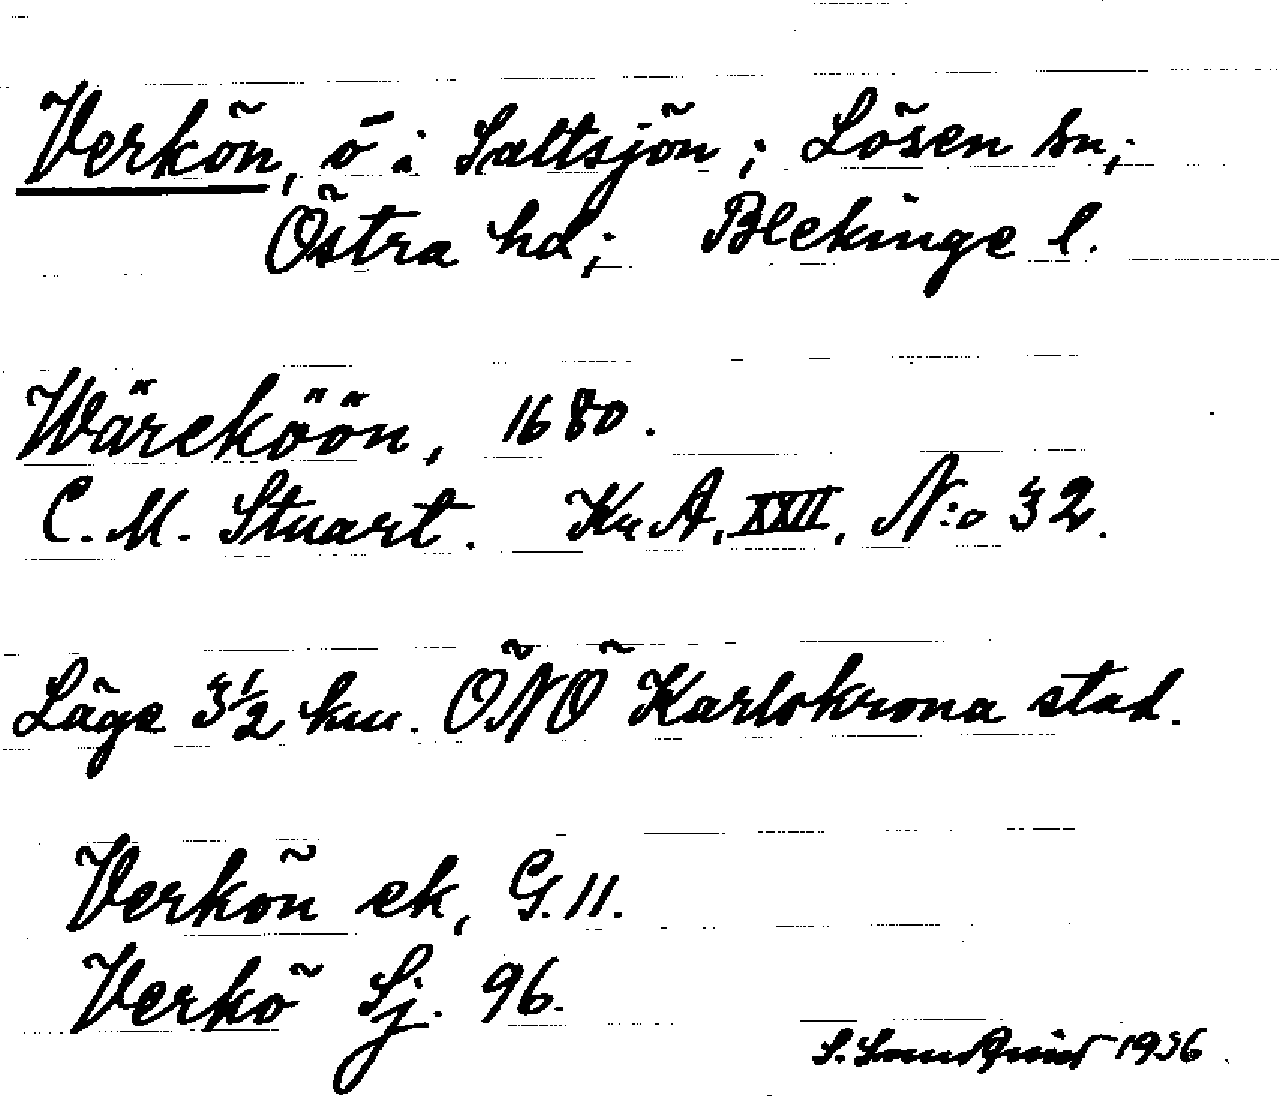 Verkön, ö i Saltsjön; Lösen sn;
Östra hd; Blekinge l.
Wäreköön, 1680.
C. M. Stuart. Kr A, XXII, N:o 32.
Läge 3½ km. ÖNÖ Karlskrona stad.
Verkön ek, G. 11.
Verkö Sj. 96.
S. 1936.